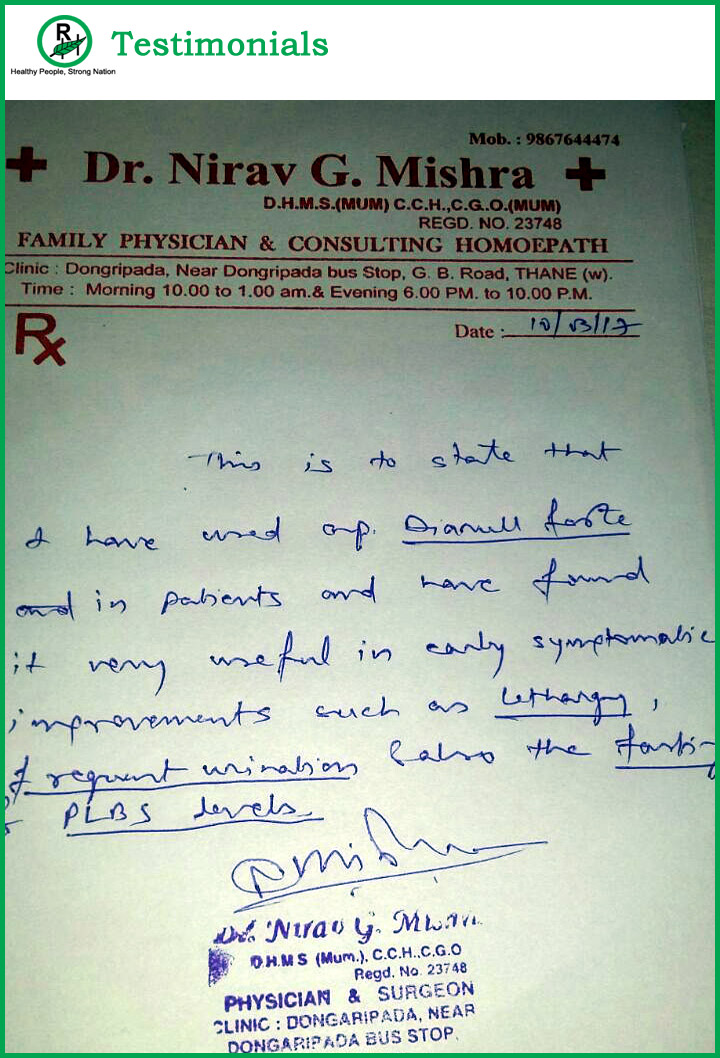 RH
Testimonials
Healthy People, Strong Nation
Mob. : 9867644474
Dr. Nirav G. Mishra
D.H.M.S.(MUM) C.C.H.,C.G.O.(MUM)
REGD. NO. 23748
FAMILY PHYSICIAN & CONSULTING HOMOEPATH
Clinic : Dongripada, Near Dongripada bus Stop, G. B. Road, THANE (w).
Time : Morning 10.00 to 1.00 am.& Evening 6.00 PM. to 10.00 P.M.
Rx
Date : 10/03/17
This is to state that
I have used cap. Dianull forte
and in patients and have found
it very useful in early symptomatic
improvements such as Lethargy,
frequent urination & also the fastin
PLBS levels.
Dr. Nirav G. 
D.H.M S (Mum.), C.C.H.,C.G.O
Regd. No. 23748
PHYSICIAN & SURGEON
CLINIC : DONGARIPADA, NEAR
DONGARIPADA BUS STOP.